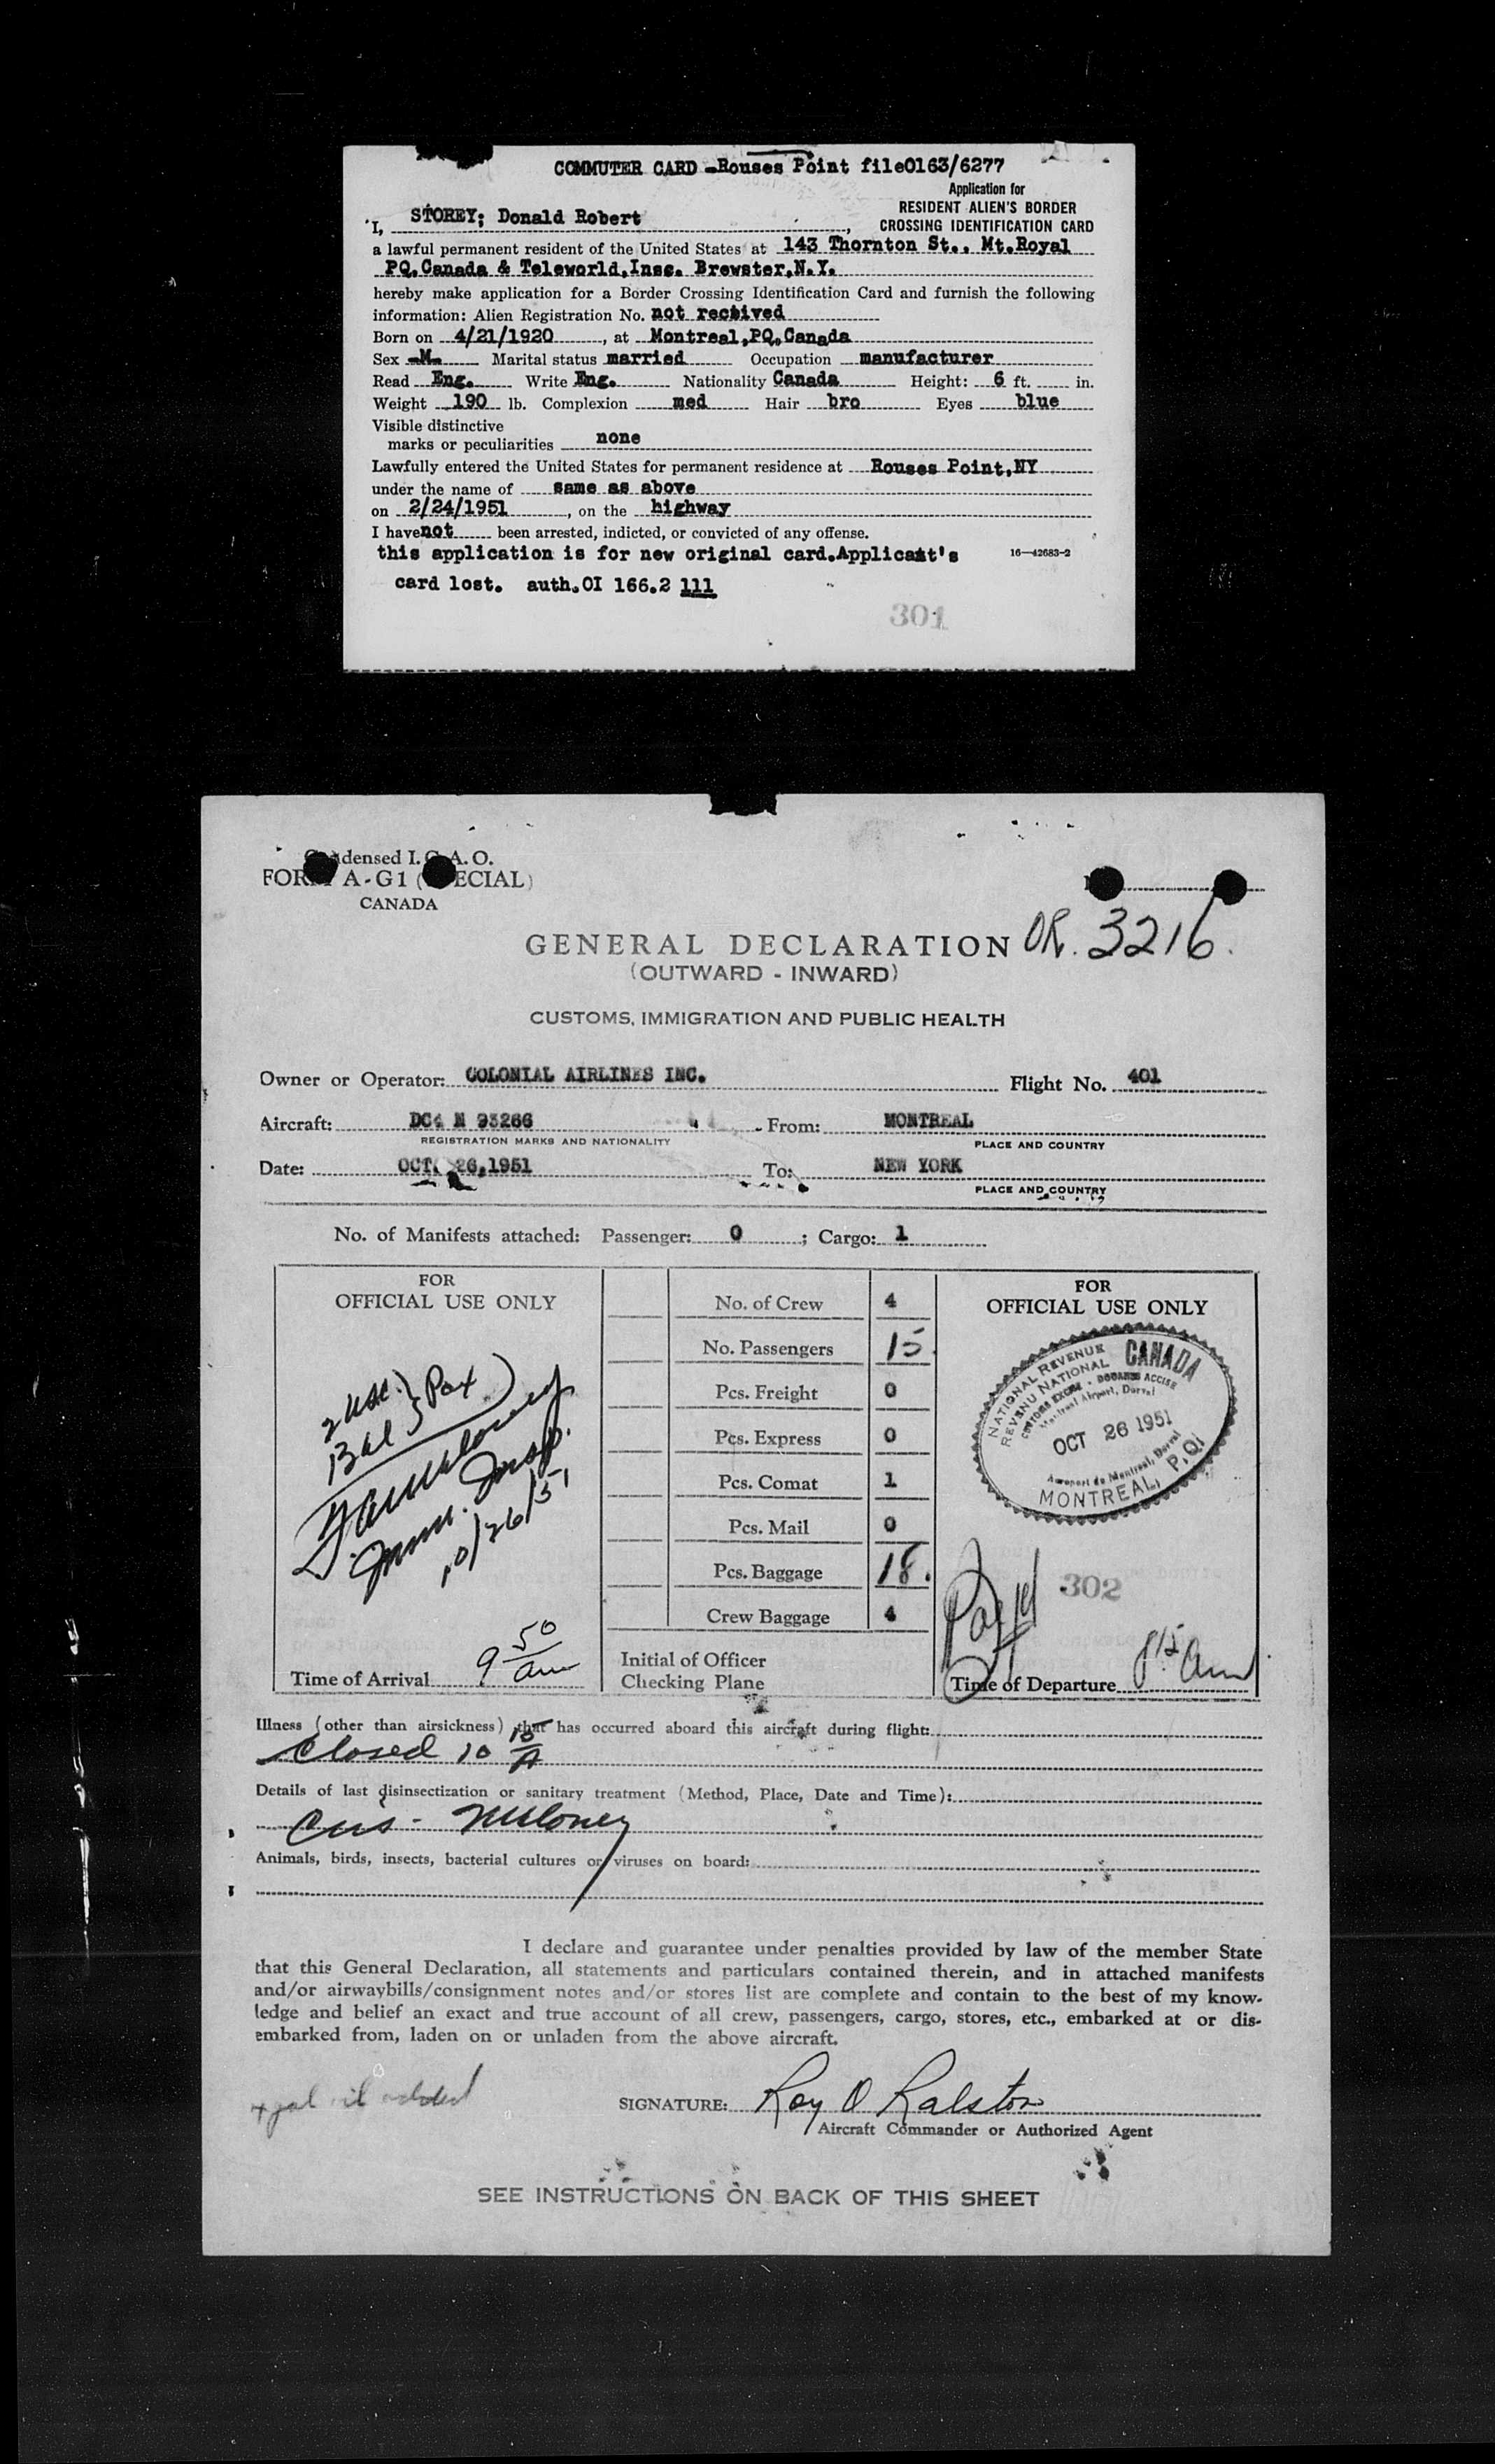 COMMUTER CARD -Rouses Point file0163/6277
Application for
RESIDENT ALIEN'S BORDER
CROSSING IDENTIFICATION CARD
I, STOREY; Donald Robert,
a lawful permanent resident of the United States at 143 Thornton St., Mt.Royal
PQ.Canada & Teleworld,Insc. Brewster,N.Y.
hereby make application for a Border Crossing Identification Card and furnish the following
information: Alien Registration No. not received
Born on 4/21/1920, at Montreal,PQ.Canada
Sex -M- Marital status married Occupation manufacturer
Read Eng. Write Eng. Nationality Canada Height: 6 ft. in.
Weight 190 lb. Complexion med Hair bro Eyes blue
Visible distinctive
marks or peculiarities none
Lawfully entered the United States for permanent residence at Rouses Point,NY
under the name of same as above
on 2/24/1951, on the highway
I have not been arrested, indicted, or convicted of any offense.
this application is for new original card.Applicant's 16—42683-2
card lost. auth.OI 166.2 111
301
Condensed I.C.A.O.
FORM A-G1 (SPECIAL)
CANADA
GENERAL DECLARATION OR. 3216.
(OUTWARD - INWARD)
CUSTOMS, IMMIGRATION AND PUBLIC HEALTH
Owner or Operator: COLONIAL AIRLINES INC. Flight No. 401
Aircraft: DC4 N 93266 From: MONTREAL
REGISTRATION MARKS AND NATIONALITY PLACE AND COUNTRY
Date: OCT. 26,1951 To: NEW YORK
PLACE AND COUNTRY
No. of Manifests attached: Passenger: 0 ; Cargo: 1
FOR
OFFICIAL USE ONLY
2 USC.} Pax
13 al
Imm. Insp.
10/26/51
Time of Arrival 9 50 am
No. of Crew 4
No. Passengers 15.
Pcs. Freight 0
Pcs. Express 0
Pcs. Comat 1
Pcs. Mail 0
Pcs. Baggage 18.
Crew Baggage 4
Initial of Officer
Checking Plane
FOR
OFFICIAL USE ONLY
NATIONAL REVENUE CANADA
REVENU NATIONAL
CUSTOMS EXCISE - DOUANES ACCISE
Montreal Airport, Dorval
OCT 26 1951
Aeroport de Montreal, Dorval
MONTREAL, P.Q.
302
Time of Departure 8 15 am
Illness (other than airsickness) that has occurred aboard this aircraft during flight:
Closed 10 15 A
Details of last disinsectization or sanitary treatment (Method, Place, Date and Time):
Cus - Muloney
Animals, birds, insects, bacterial cultures or viruses on board:
I declare and guarantee under penalties provided by law of the member State
that this General Declaration, all statements and particulars contained therein, and in attached manifests
and/or airwaybills/consignment notes and/or stores list are complete and contain to the best of my know-
ledge and belief an exact and true account of all crew, passengers, cargo, stores, etc., embarked at or dis-
embarked from, laden on or unladen from the above aircraft.
gal oil added
SIGNATURE: Roy O Ralston
Aircraft Commander or Authorized Agent
SEE INSTRUCTIONS ON BACK OF THIS SHEET